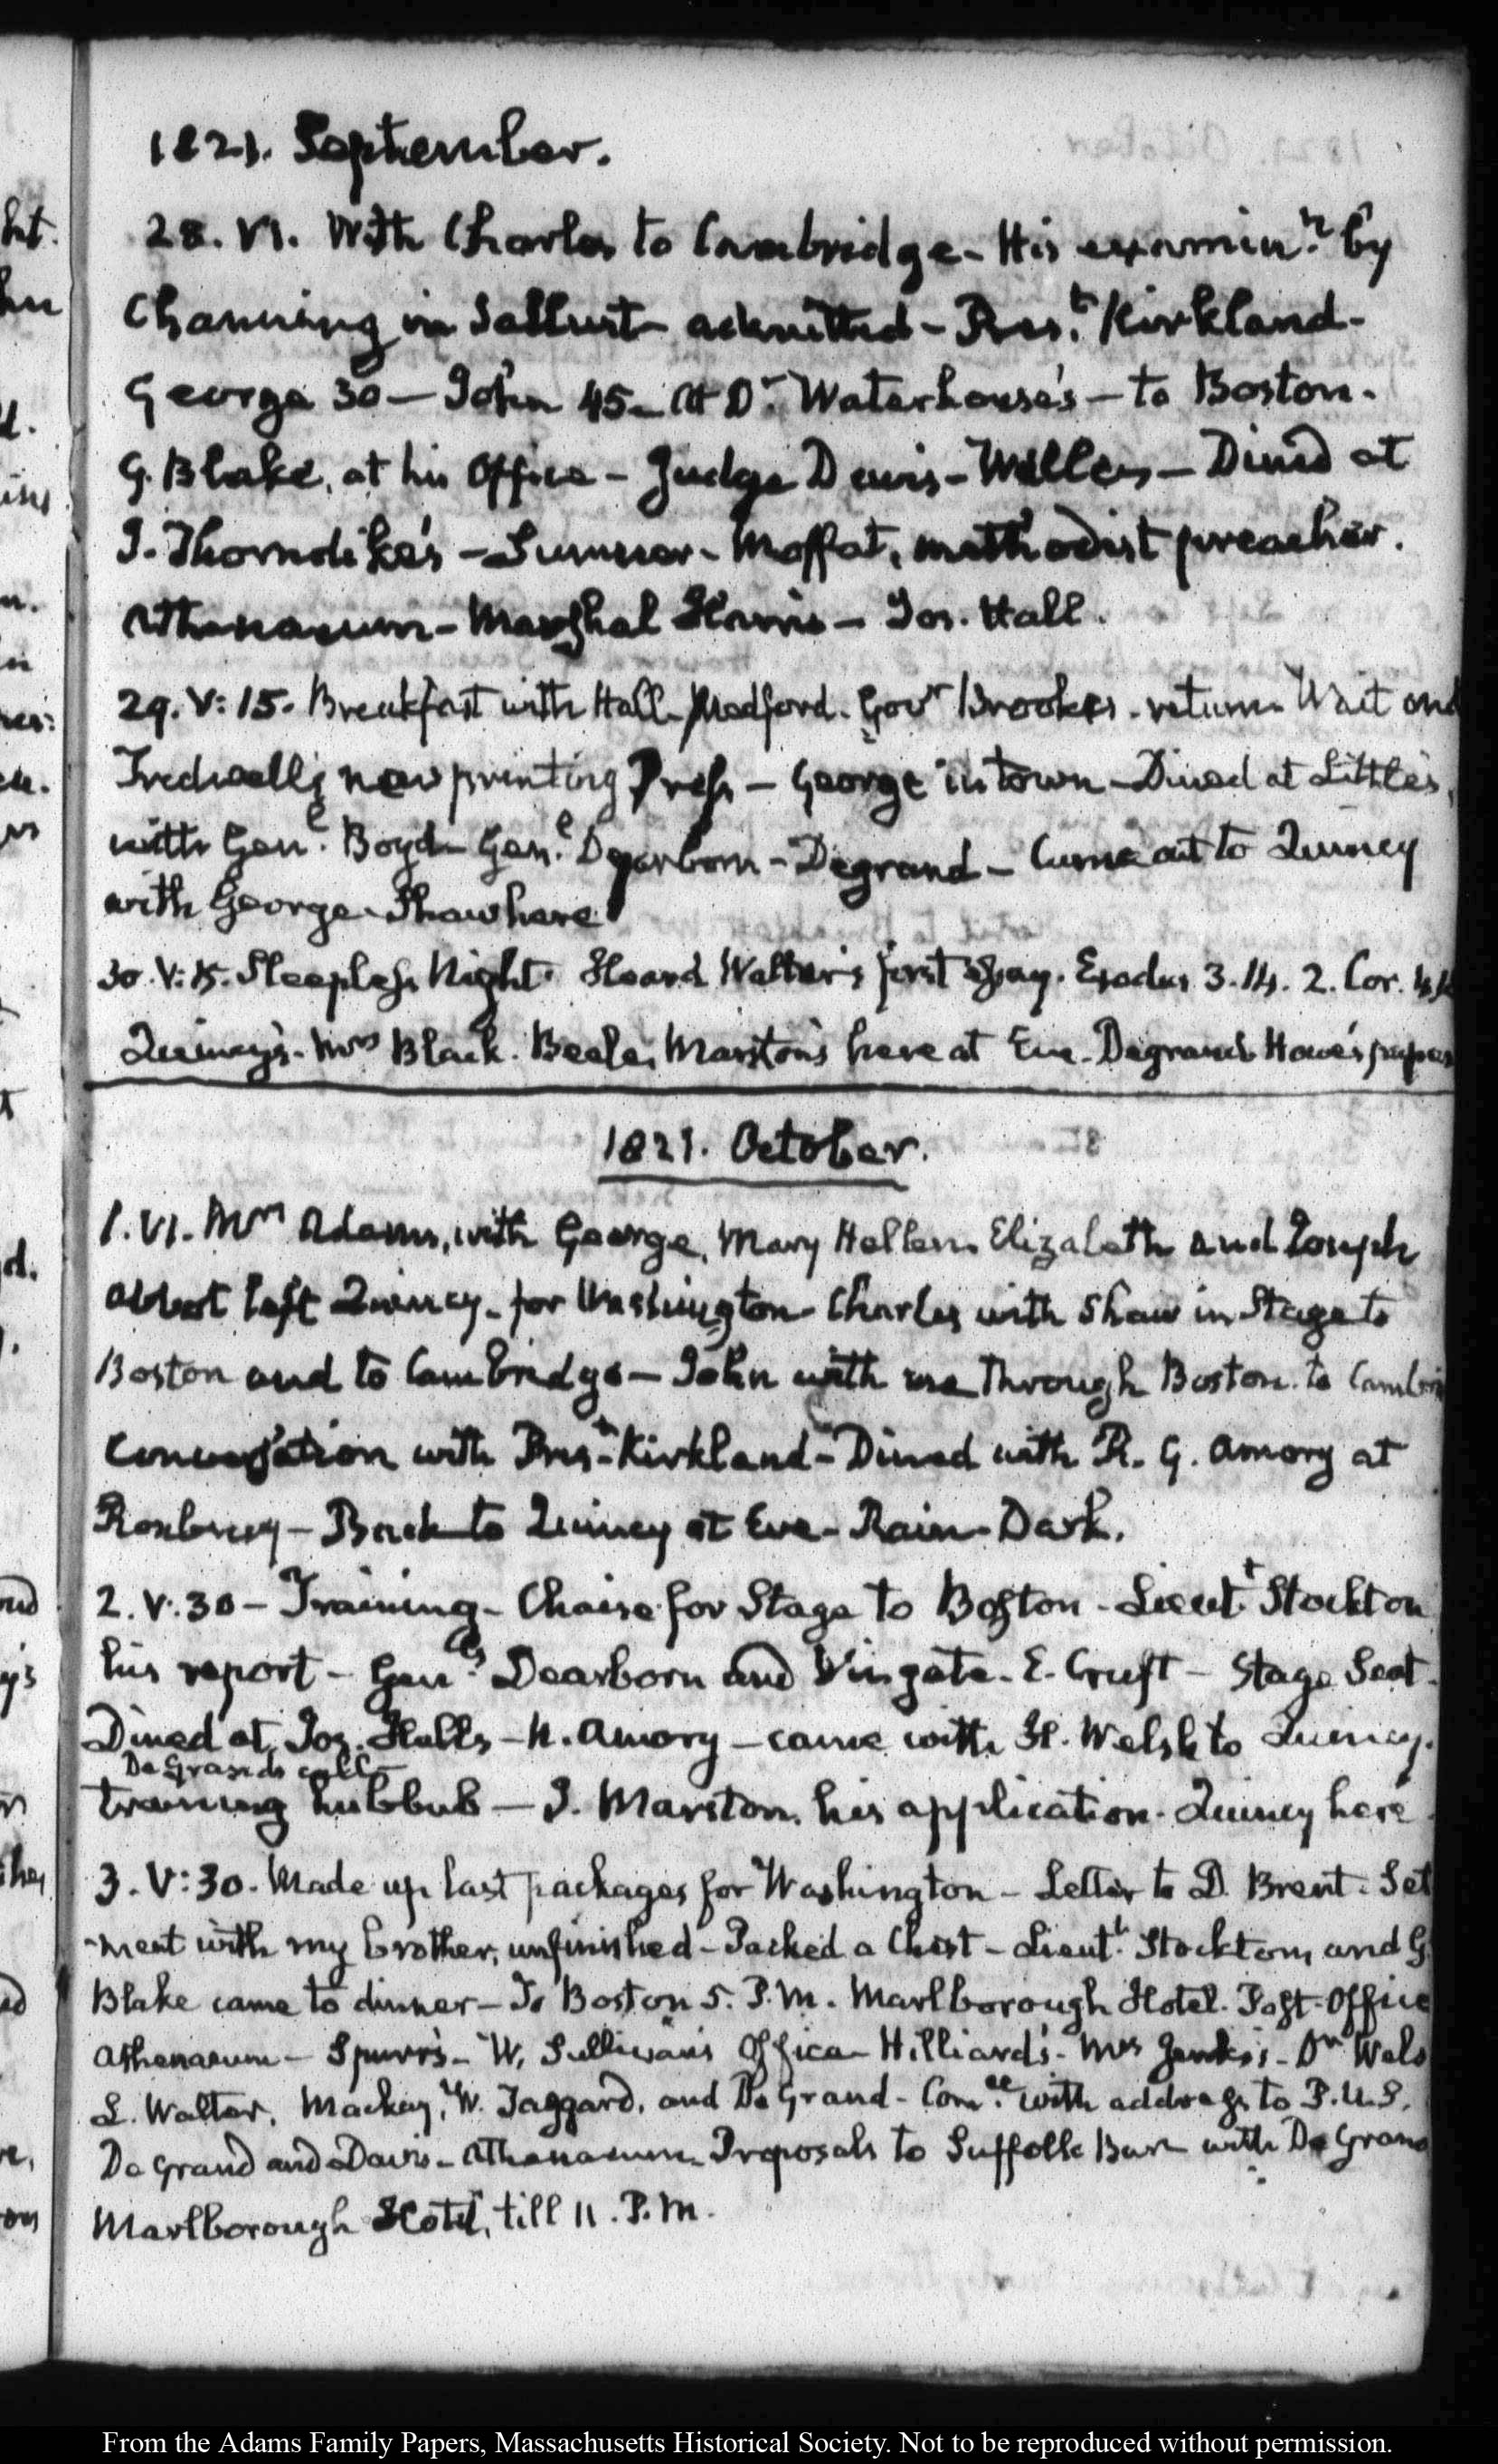 1821. September.
28. VI. With Charles to Cambridge - His examinn. by
Channing in Sallust - admitted - Prest. Kirkland -
George 30 — John 45 - At Dr. Waterhouse's — to Boston.
G. Blake, at his Office - Judge Davis - Willey — Dined at
I. Thorndike's - Sumner - Moffat, methodist preacher.
Athenaeum - Marshal Harris - Jos. Hall.
29. V: 15. Breakfast with Hall. Medford. Govr Brooks. return. Wait and
Tredwell's new printing Press — George in town - Dined at Little's,
with Genl. Boyd - Genl. Dearborn - Degrand — Came out to Quincy
with George - Shaw here
30. V: 15. Sleepless Night. Heard Walter's first Essay. Exodus 3. 14. 2. Cor.
Quincy's - Mrs Black. Beale, Marston's here at Eve. Degrand's Howe's papers
1821. October.
1. VI. Mrs Adams, with George, Mary Hellen, Elizabeth and Joseph
left Quincy - for Washington - Charles with Shaw in Stage to
Boston and to Cambridge — John with me through Boston. to
Conversation with Prest. Kirkland - Dined with R. G. Amory at
Roxbury — Back to Quincy at Eve - Rain - Dark.
2. V. 30 — Training - Chaise for Stage to Boston - Lieutt. Stockton
his report - Genls. Dearborn and Wingate - E. Cruft — Stage Seat.
Dined at Jos. Hall's - N. Amory — came with H. Welsh to Quincy.
De Grand's call
training hubbub — J. Marston, his application - Quincy here.
3. V: 30. Made up last packages for Washington — Letter to D. Brent. Set
-ment with my brother, unfinished - Packed a Chest - Lieutt. Stockton, and G.
Blake came to dinner - To Boston 5. P.M. Marlborough Hotel. Post-Office
Athenaeum — Spurr's - W. Sullivan's Office - Hilliard's - Mrs - Dr
L. Walter, Mackay, W. Taggard, and De Grand - Comee. with address to P.U.S.
De Grand and Davis - Athenaeum - Proposals to Suffolk Bar with De Grand
Marlborough Hotel, till 11. P.M.
From the Adams Family Papers, Massachusetts Historical Society. Not to be reproduced without permission.